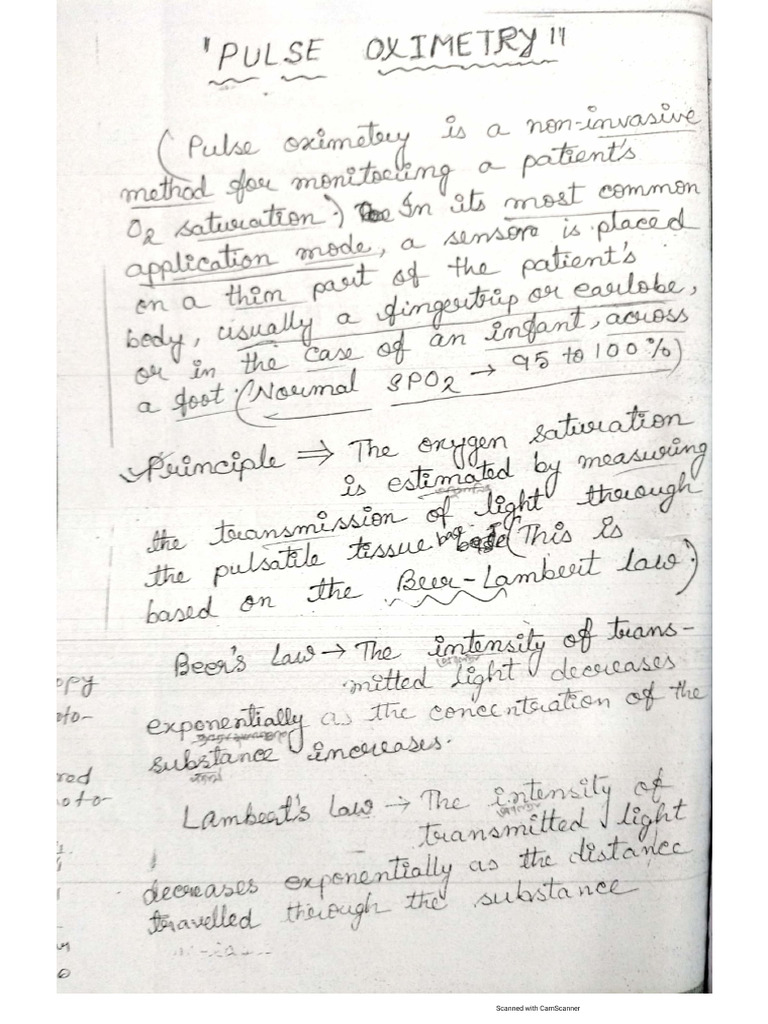 "PULSE OXIMETRY"
(Pulse oximetry is a non-invasive
method for monitoring a patient's
O2 saturation.) In its most common
application mode, a sensor is placed
on a thin part of the patient's
body, usually a fingertrip or earlobe,
or in the case of an infant, across
a foot. (Normal SPO2 → 95 to 100%)
Principle ⇒ The oxygen saturation
is estimated by measuring
the transmission of light through
the pulsatile tissue (This is
based on the Beer-Lambert law.)
Beer's Law → The intensity of trans-
mitted light decreases
exponentially as the concentration of the
substance increases.
Lambert's Law → The intensity of
transmitted light
decreases exponentially as the distance
travelled through the substance
opy
oto-
red
oto-
Scanned with CamScanner